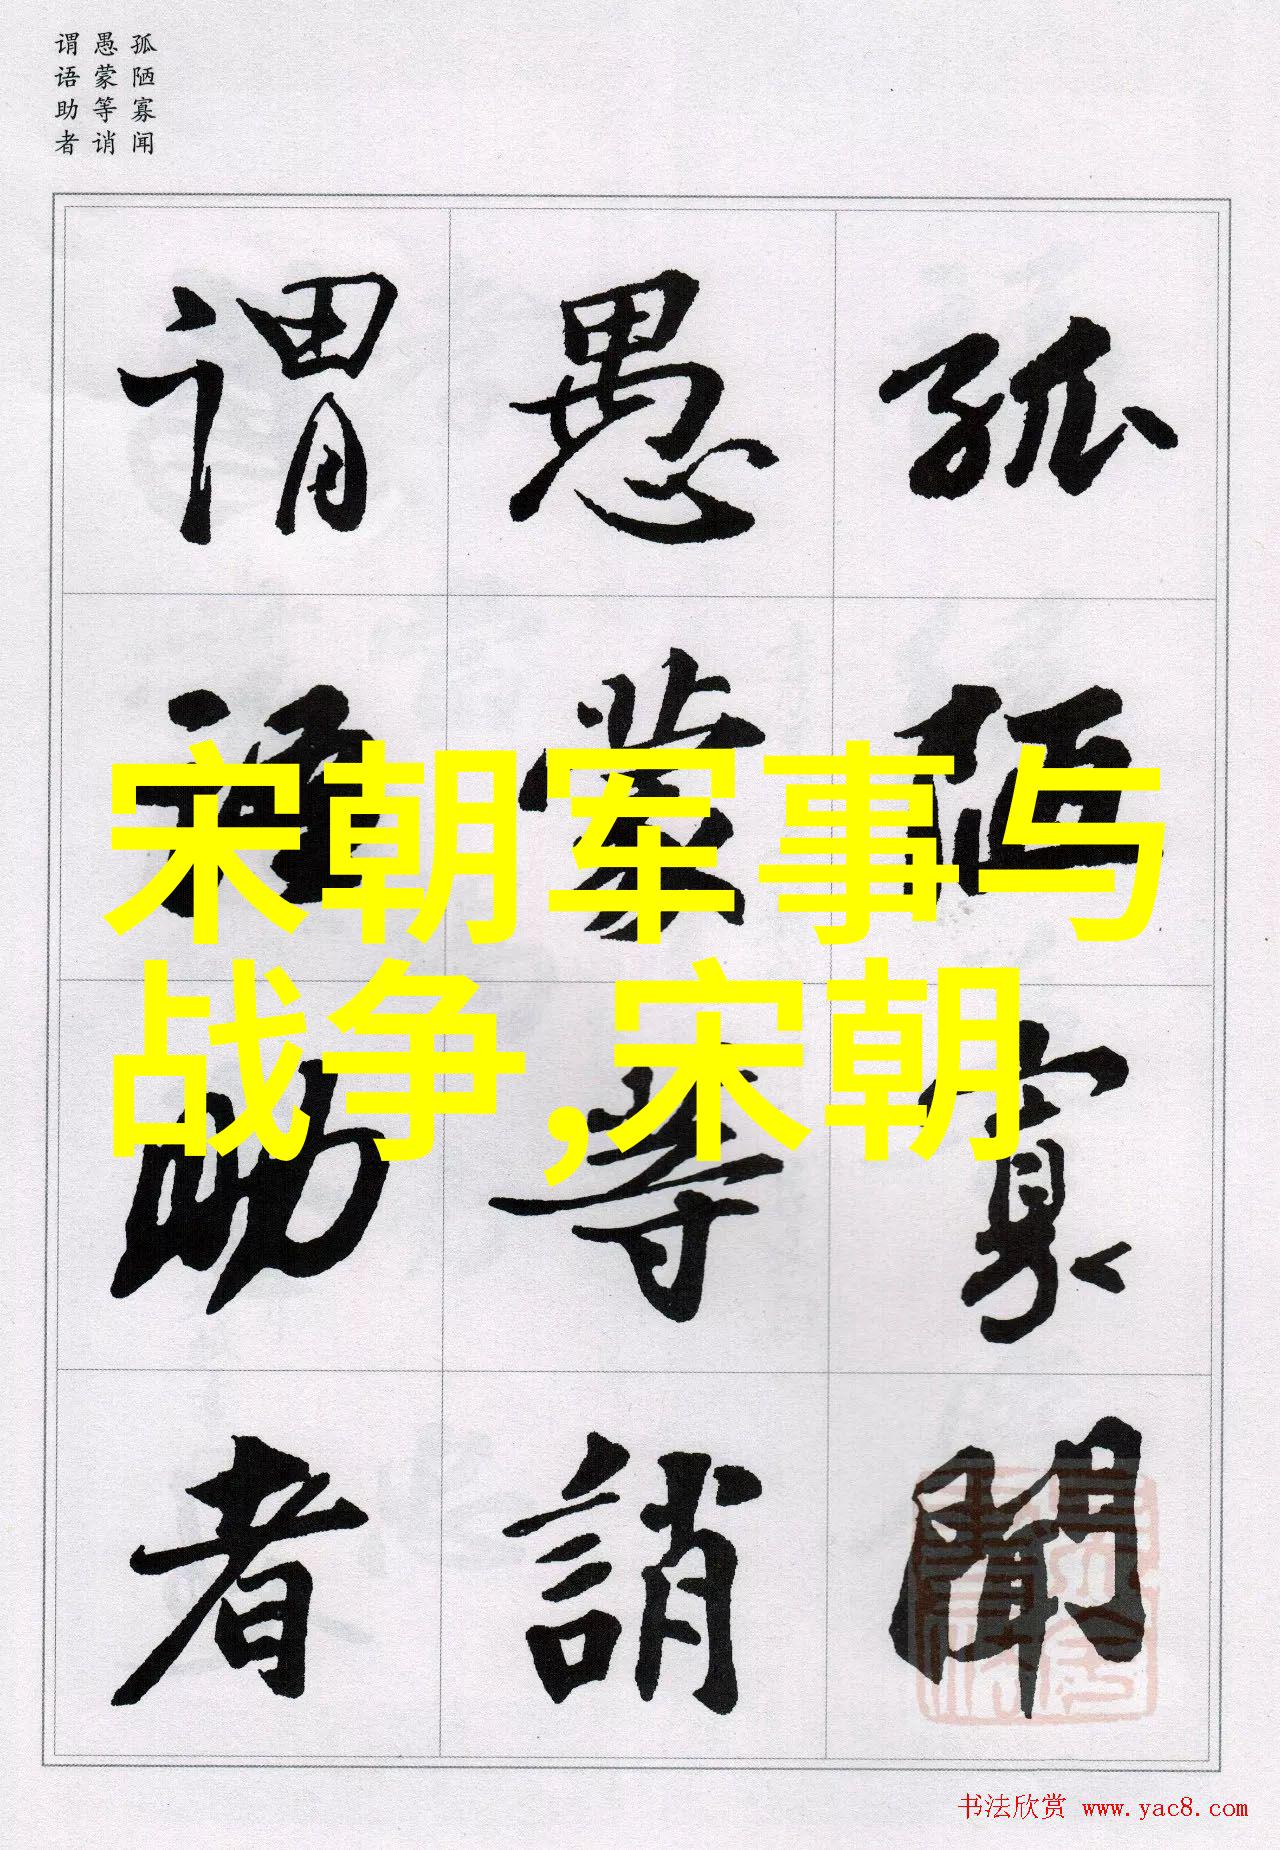 孤陋寡闻
愚蒙等诮
谓语助者
孤陋寡闻
愚蒙等誚
谓语助者
宋朝军事与
战争,宋朝
书法欣赏 www.yac8.com